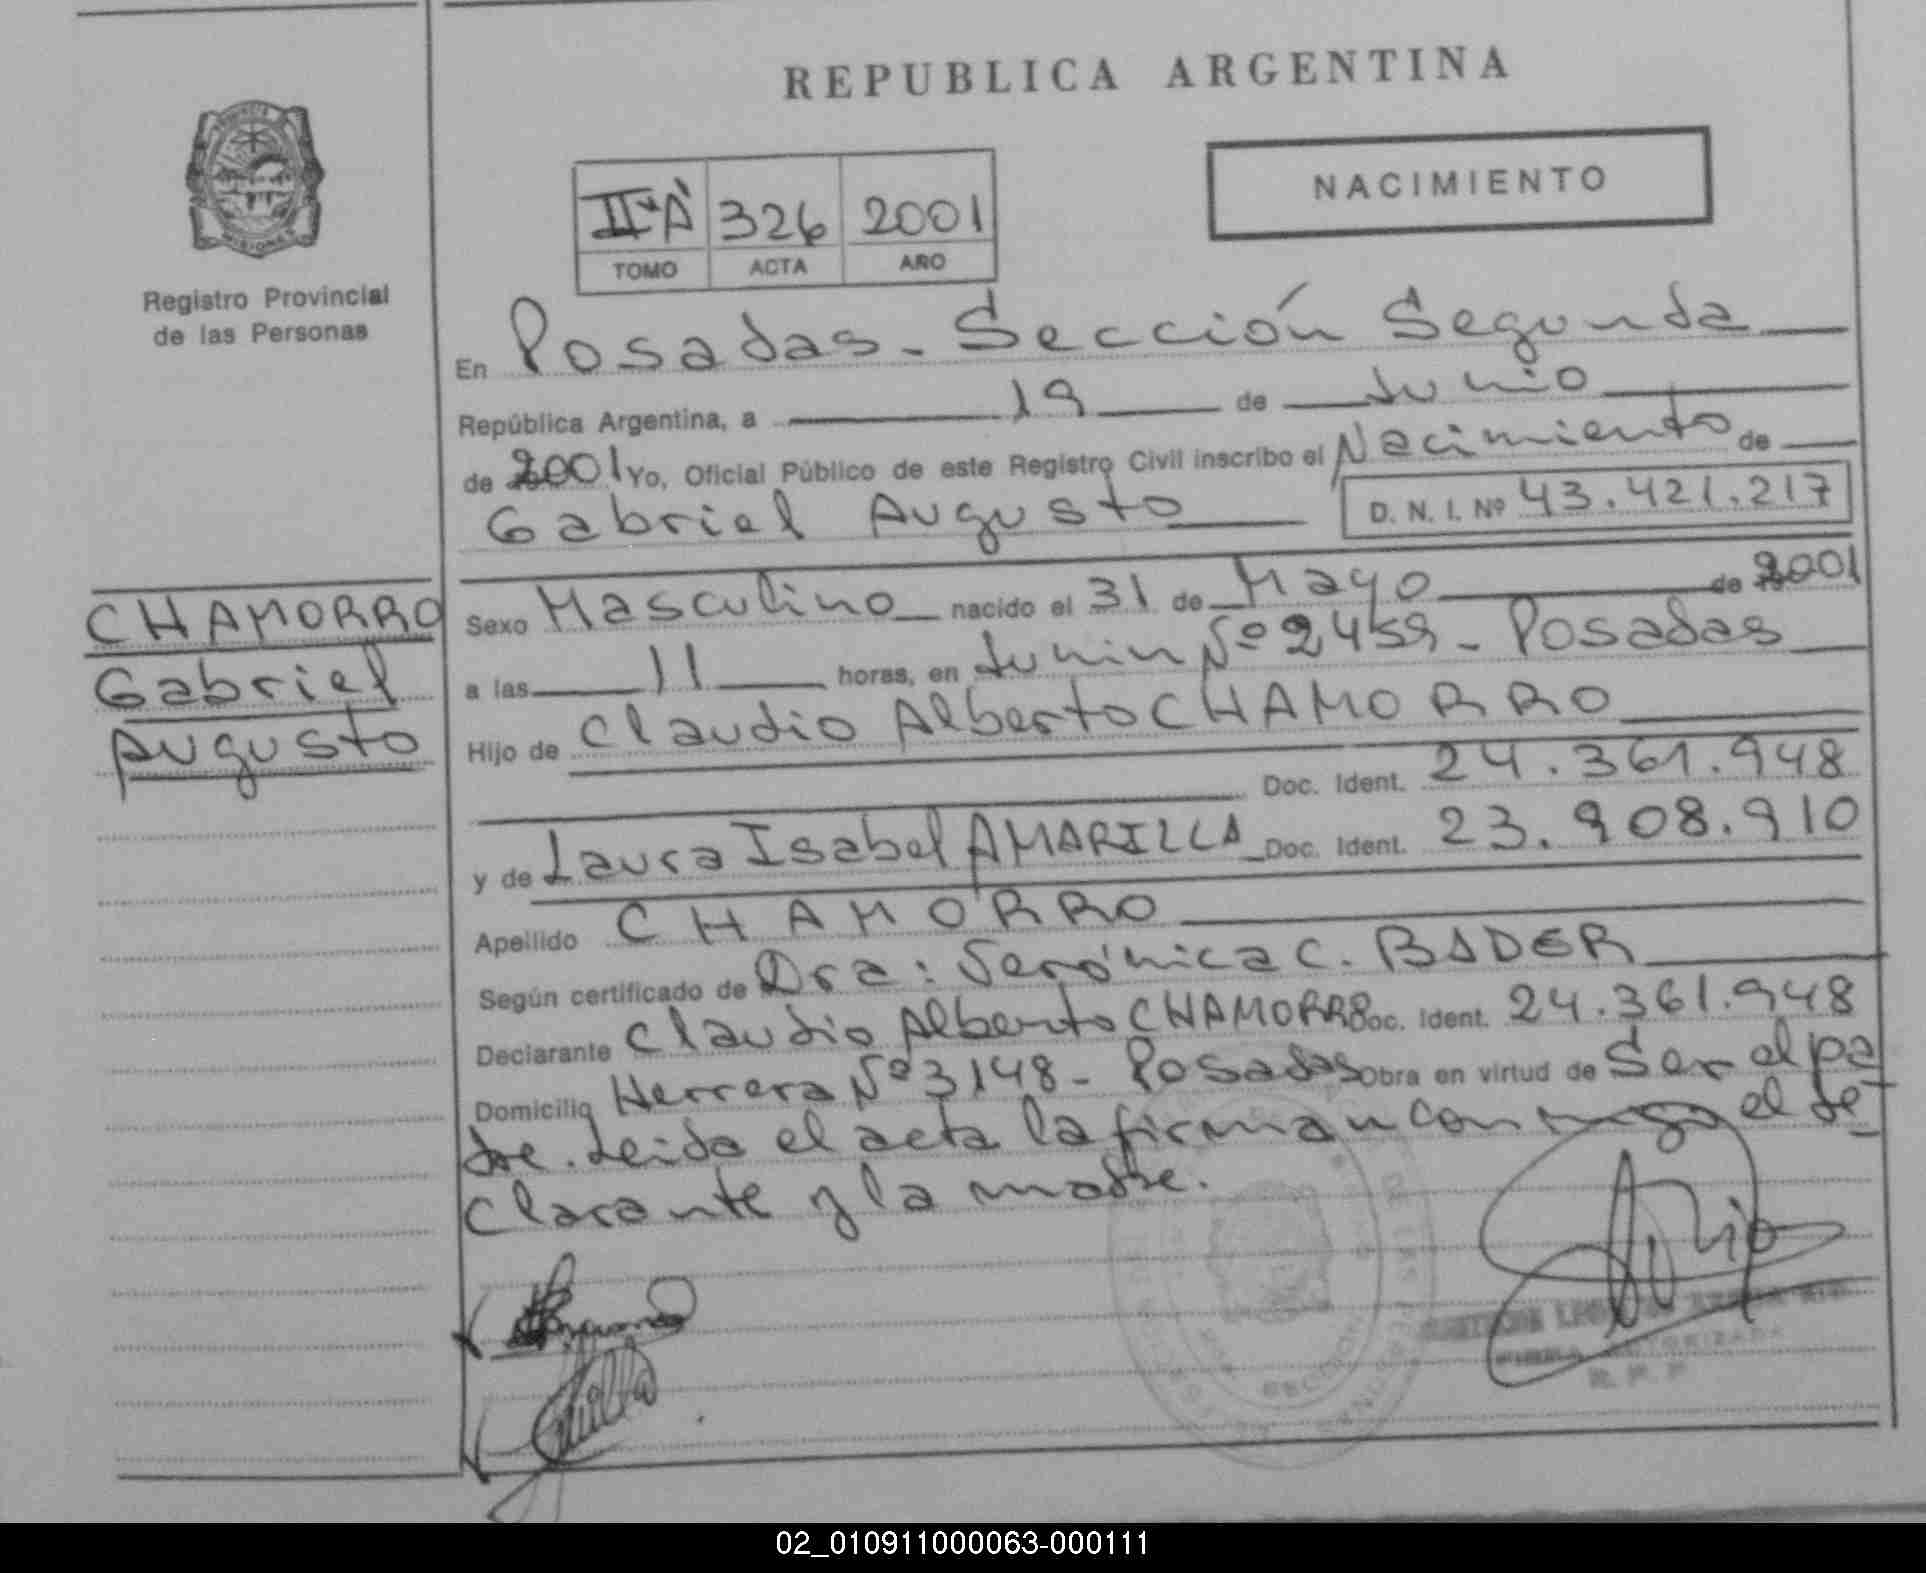 REPUBLICA ARGENTINA
NACIMIENTO
IIºA 326 2001
TOMO ACTA AÑO
Registro Provincial
de las Personas
En Posadas - Sección Segunda
República Argentina, a 19 de Junio
de 2001 Yo, Oficial Público de este Registro Civil inscribo el Nacimiento de
Gabriel Augusto D. N. I. Nº 43.421.217
CHAMORRO
Gabriel
Augusto
Sexo Masculino nacido el 31 de Mayo de 2001
a las 11 horas, en Junin Nº 2459 - Posadas
Hijo de Claudio Alberto CHAMORRO
Doc. Ident. 24.361.948
y de Laura Isabel AMARILLA Doc. Ident. 23.908.910
Apellido CHAMORRO
Según certificado de Dra: Verónica C. BADER
Declarante Claudio Alberto CHAMORRO Doc. Ident. 24.361.948
Domicilio Herrera Nº 3148 - Posadas Obra en virtud de Ser el pa
dre. Leida el acta la firman conmigo el de
clarante y la madre.
FIRMA AUTORIZADA
R. P. P
02_010911000063-000111